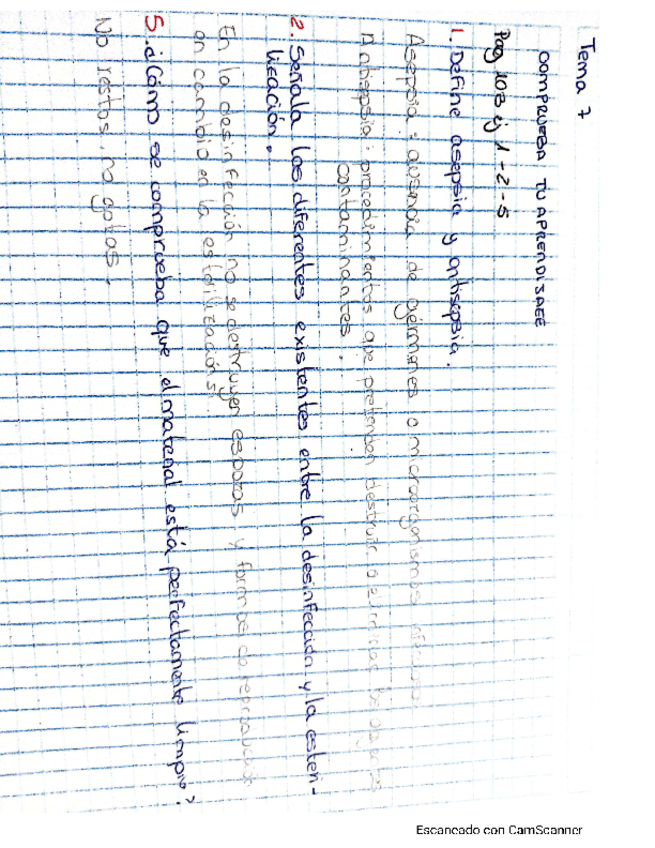 Tema 7
COMPRUEBA TU APRENDISAEE
Pag 103 ej 1-2-5
1. Define asepsia y antisepsia.
Asepsia: ausencia de gérmenes o microorganismos
Antisepsia: procedimientos que pretenden destruir o eliminar
contaminantes.
2. Señala las diferentes existentes entre la desinfección y la esteri-
lización.
En la desinfección no se destruyen esporas y formas de reproducción
en cambio en la esterilización sí.
5. ¿Cómo se comprueba que el material está perfectamente limpio?
No restos, no gotas.
Escaneado con CamScanner